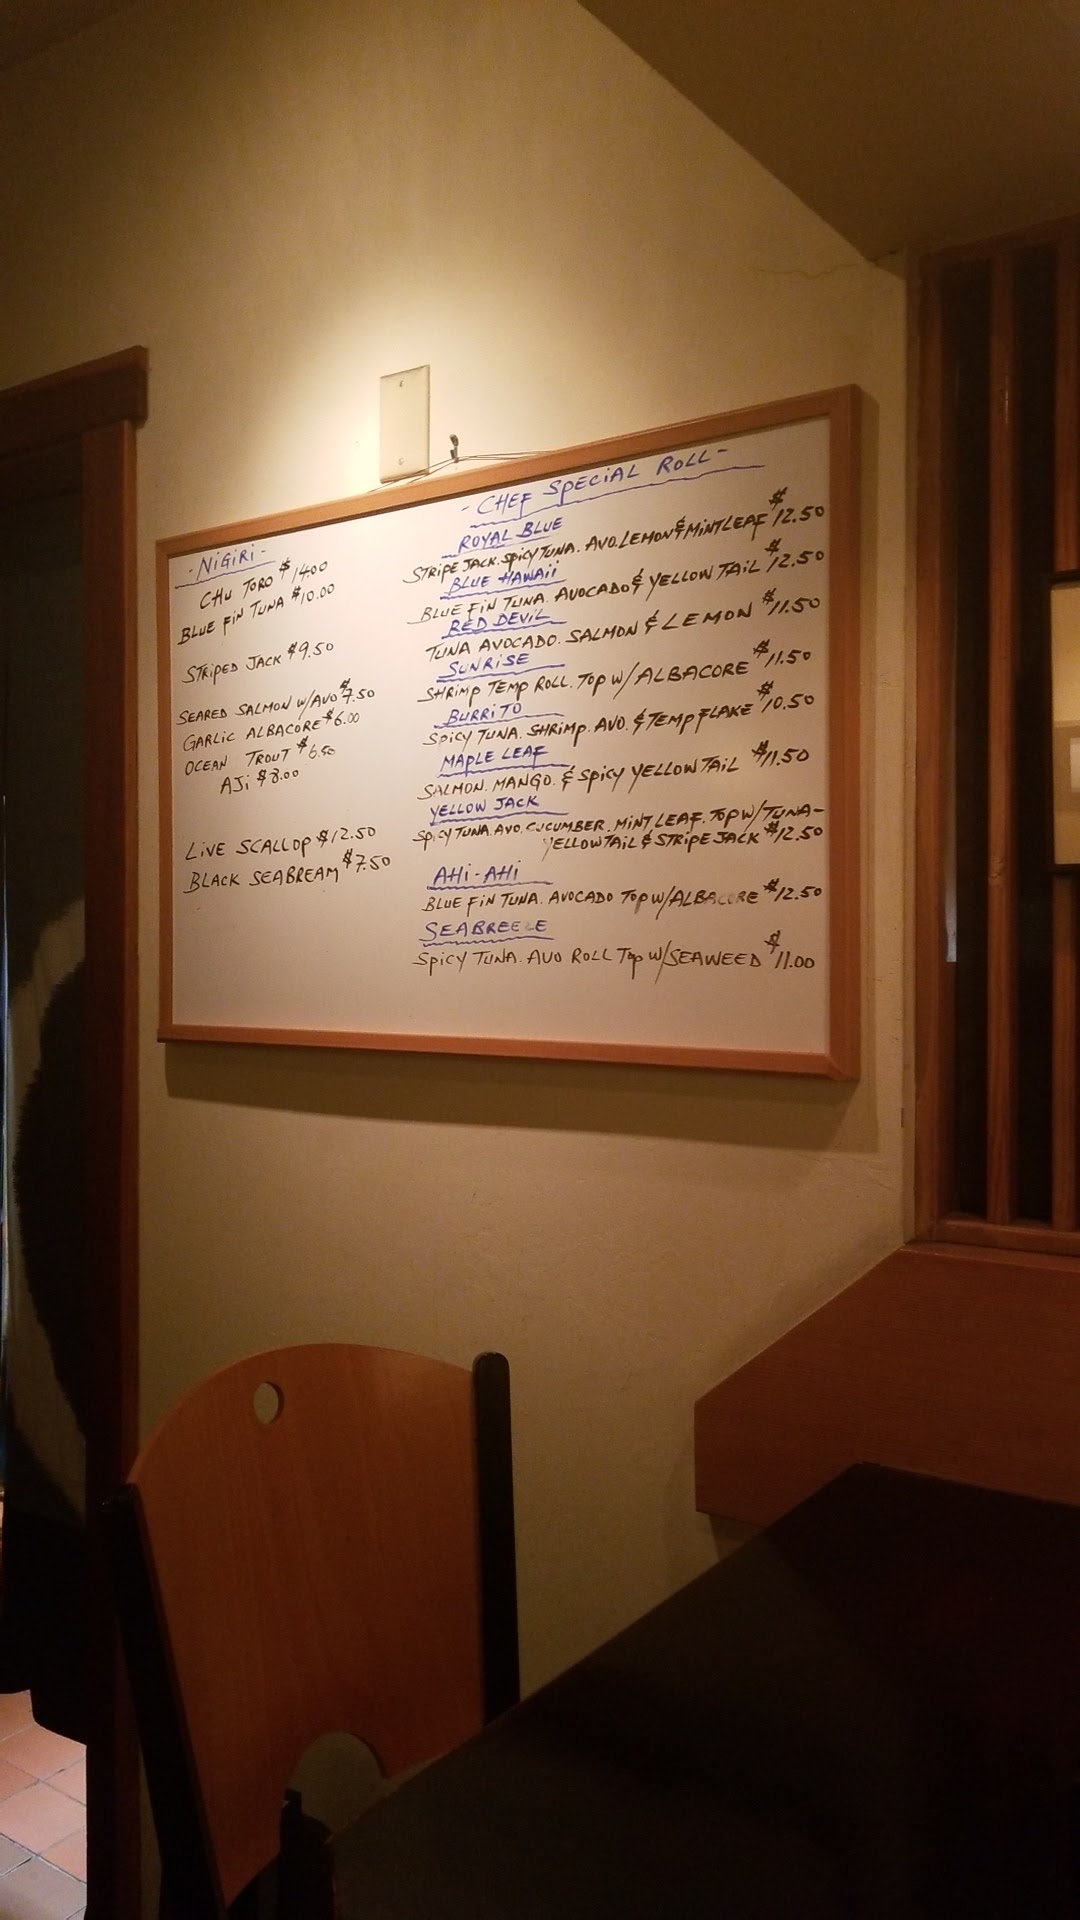 - NiGiRi -
CHU TORO $14.00
BLUE FiN TUNA $10.00
STRIPED JACK $9.50
SEARED SALMON W/AVO $7.50
GARLIC ALBACORE $6.00
OCEAN TROUT $6.50
AJi $8.00
LIVE SCALLOP $12.50
BLACK SEABREAM $7.50
- CHEF SPECiAL ROLL -
ROYAL BLUE
STRIPE JACK. SPICY TUNA. AVO. LEMON & MINT LEAF $12.50
BLUE HAWAii
BLUE FiN TUNA. AVOCADO & YELLOW TAIL $12.50
RED DEVIL
TUNA AVOCADO. SALMON & LEMON $11.50
SUNRISE
SHRIMP TEMP ROLL. TOP W/ ALBACORE $11.50
BURRiTO
SPICY TUNA. SHRIMP. AVO. & TEMP FLAKE $10.50
MAPLE LEAF
SALMON. MANGO. & SPICY YELLOW TAIL $11.50
YELLOW JACK
SPICY TUNA. AVO. CUCUMBER. MINT LEAF. TOP W/ TUNA-
YELLOWTAIL & STRIPE JACK $12.50
AHi-AHi
BLUE FiN TUNA. AVOCADO TOP W/ALBACORE $12.50
SEABREEZE
SPICY TUNA. AVO ROLL TOP W/SEAWEED $11.00